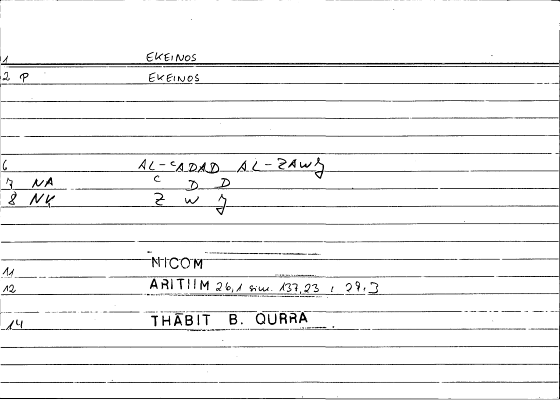 1 EKEINOS
2 P EKEINOS
6 AL-ʿADAD AL-ZAWǦ
7 NA ʿ D D
8 NK Z W Ǧ
11 NICOM
12 ARITIIM 26,1 sim. 137,23 ; 29,3
14 THĀBIT B. QURRA